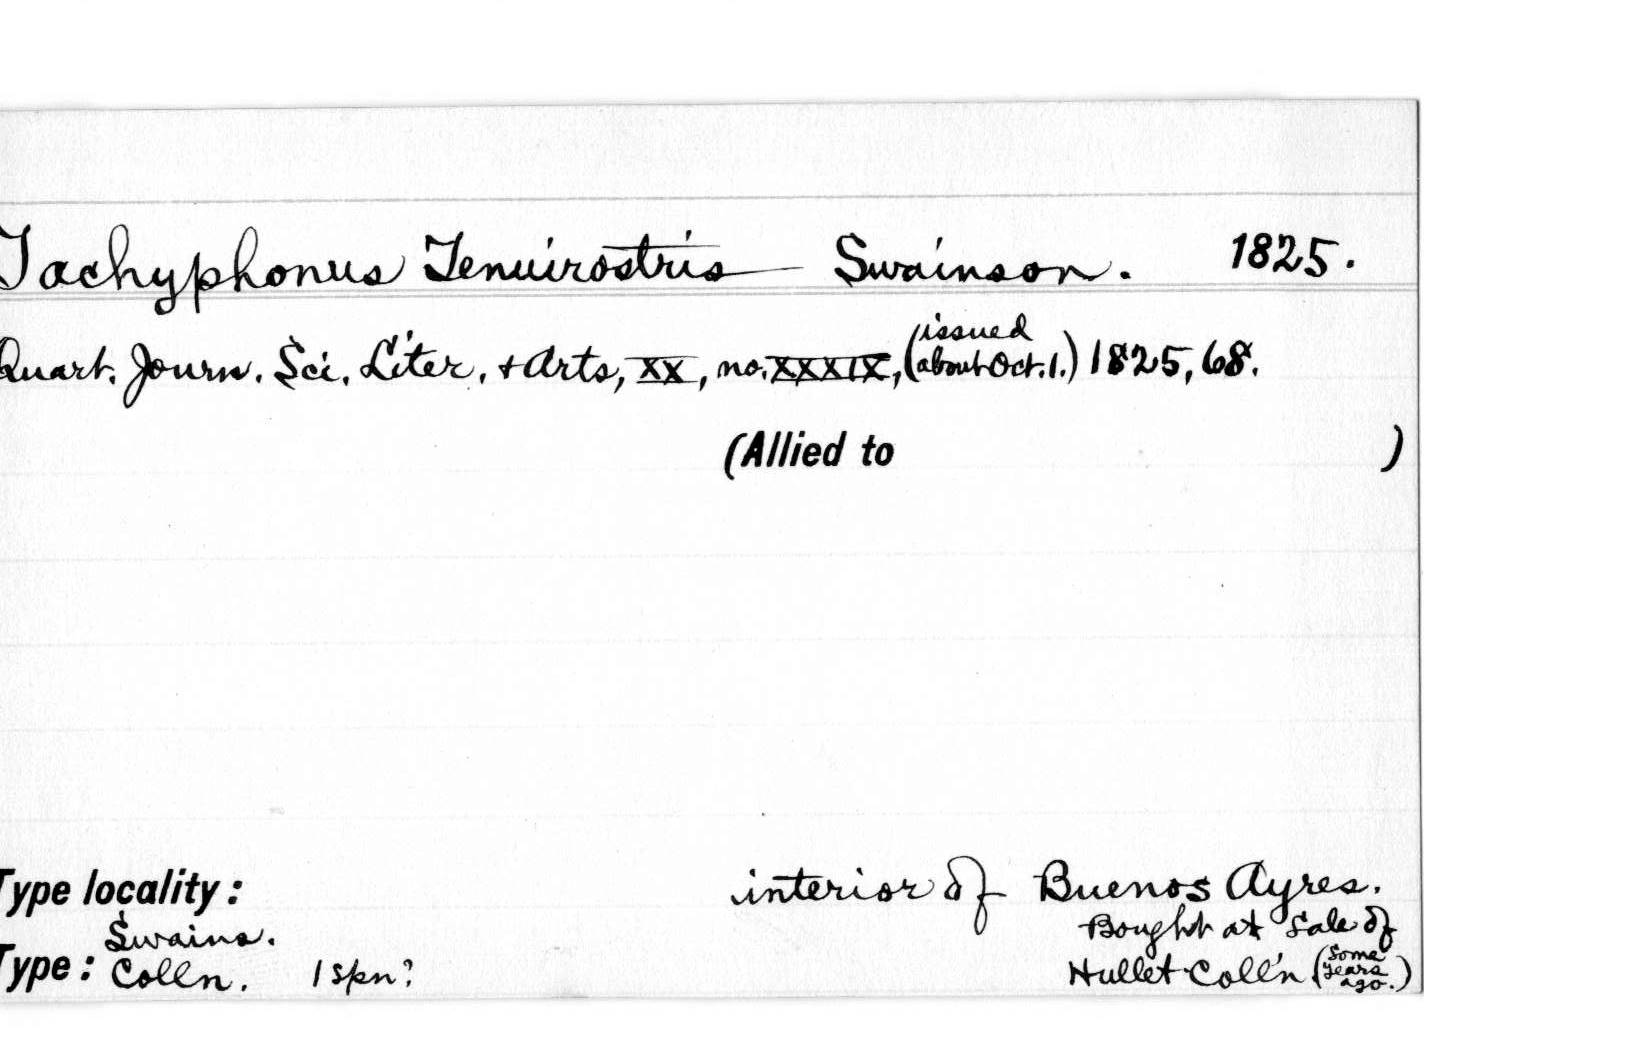 Tachyphonus Tenuirostris Swainson. 1825.
Quart. Journ. Sci. Liter. + Arts, XX, no. XXXIX, (issued about Oct. 1.) 1825, 68.
(Allied to )
Type locality: interior of Buenos Ayres.
Type: Swains. Colln. 1 spn? Bought at Sale of
Hullet Coll'n (some years ago.)